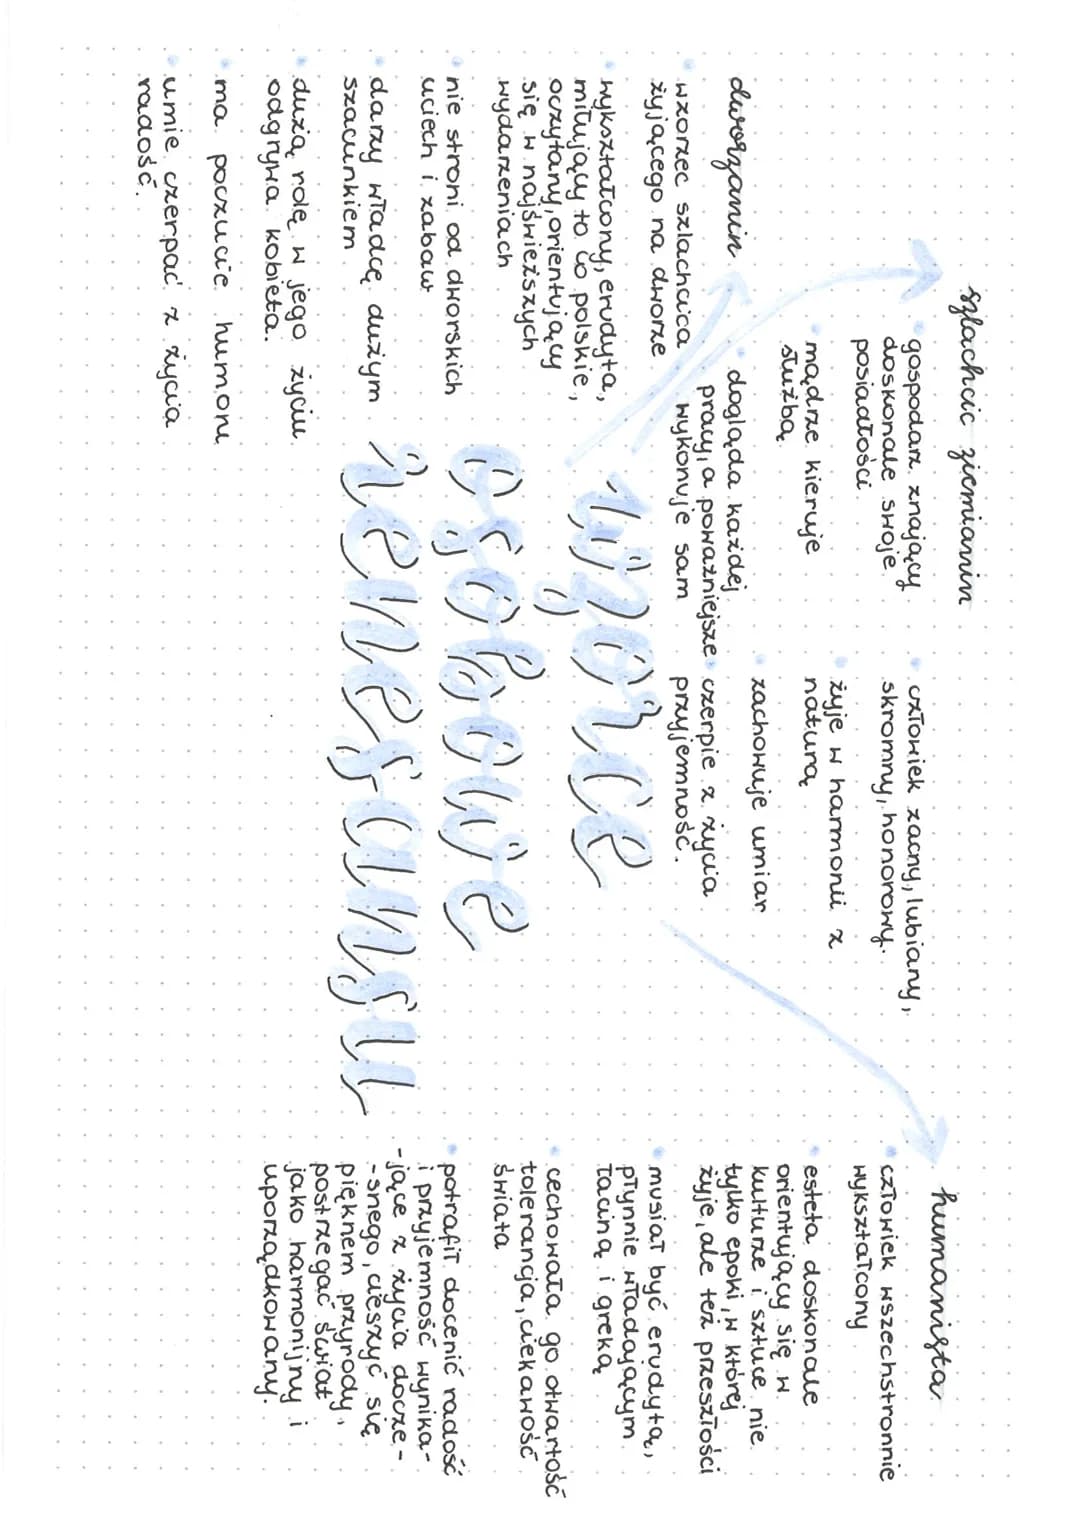 szlachcic ziemianin
gospodarz znający
doskonale swoje
posiadłości
mądrze kieruje
służbą
dogląda każdej
pracy, a poważniejsze
wykonuje sam
człowiek zacny, lubiany,
skromny, honorowy.
żyje w harmonii z
naturą
zachowuje umiar
czerpie z życia
przyjemność.
dworzanin
wzorzec szlachcica
żyjącego na dworze
wykształcony, erudyta,
miłujący to co polskie,
oczytany, orientujący
się w najświeższych
wydarzeniach
nie stroni od dworskich
uciech i zabaw
darzy władcę dużym
szacunkiem
dużą rolę w jego życiu
odgrywa kobieta.
ma poczucie humoru
umie czerpać z życia
radość.
wzorce
osobowe
renesansu
humanista
człowiek wszechstronnie
wykształcony
esteta doskonale
orientujący się w
kulturze i sztuce nie
tylko epoki, w której
żyje, ale też przeszłości
musiał być erudytą,
płynnie władającym
łaciną i greką
cechowała go otwartość
tolerancja, ciekawość
świata
potrafił docenić radość
i przyjemność wynika-
-jące z życia docze-
-snego, cieszyć się
pięknem przyrody,
postrzegać świat
jako harmonijny i
uporządkowany.